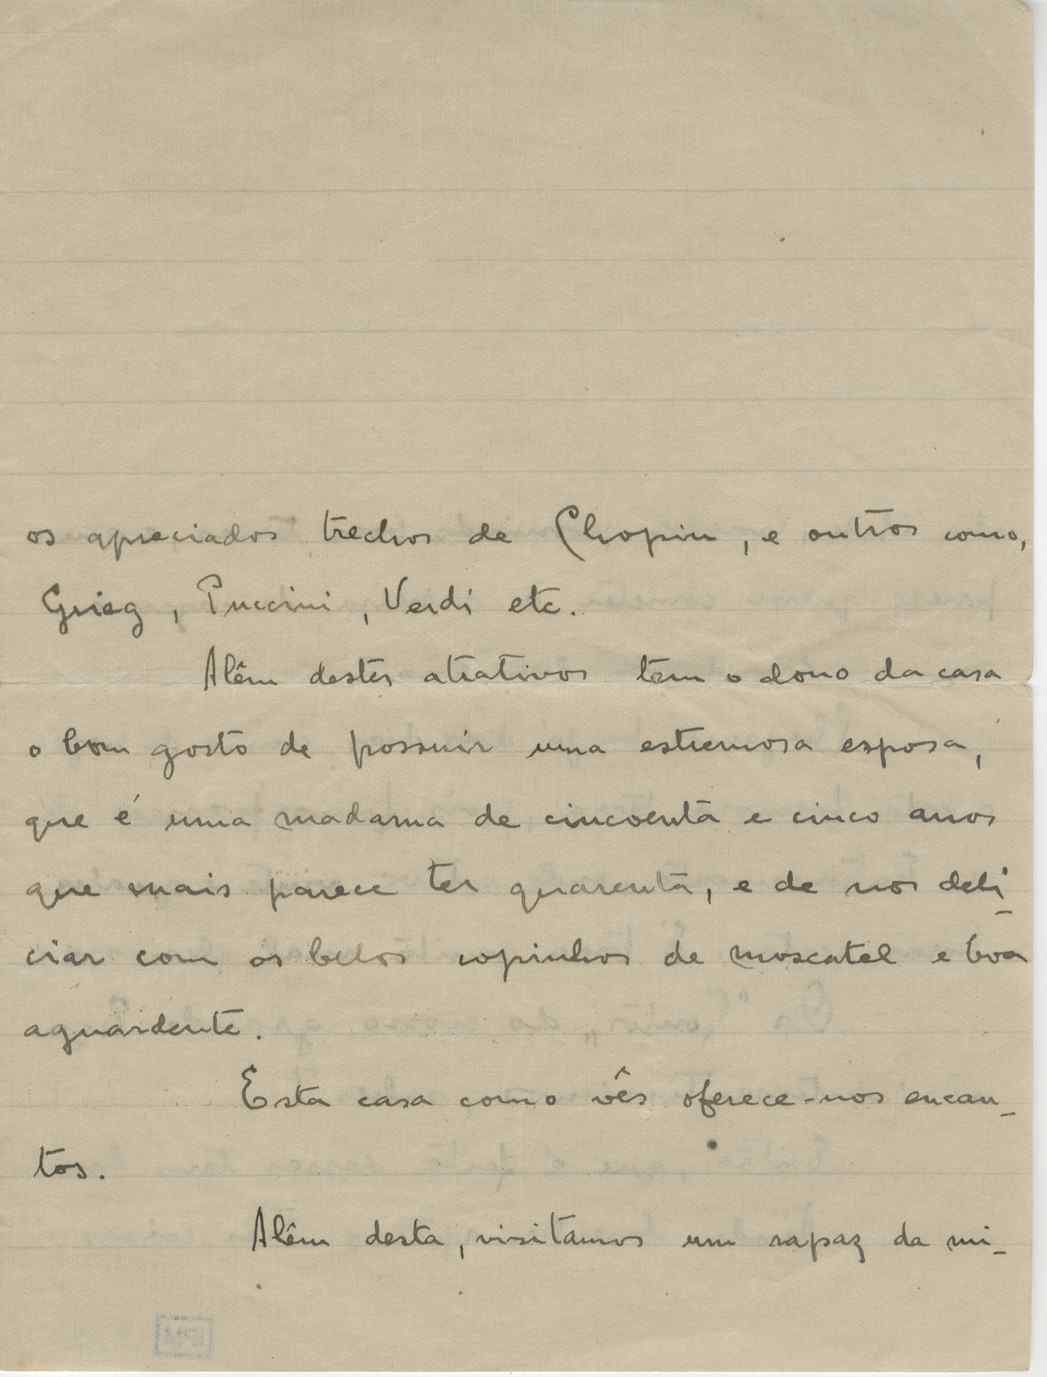 os apreciados trechos de Chopin, e outros como,
Grieg, Puccini, Verdi etc.
Alêm destes atrativos tem o dono da casa
o bom gosto de possuir uma estremosa esposa,
que é uma madama de cincoenta e cinco anos
que mais parece ter quarenta, e de nos deli-
ciar com os belos copinhos de moscatel e boa
aguardente.
Esta casa como vês oferece-nos encan-
tos.
Alêm desta, visitamos um rapaz da mi-